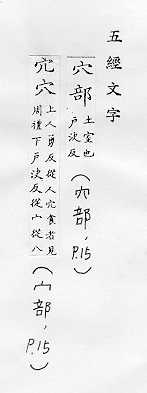 五經文字
穴部
土室也
戶決反
(穴部, P.15)
宂穴
上人勇反從人宂食者見
周禮下戶決反從宀從八
(宀部, P.15)